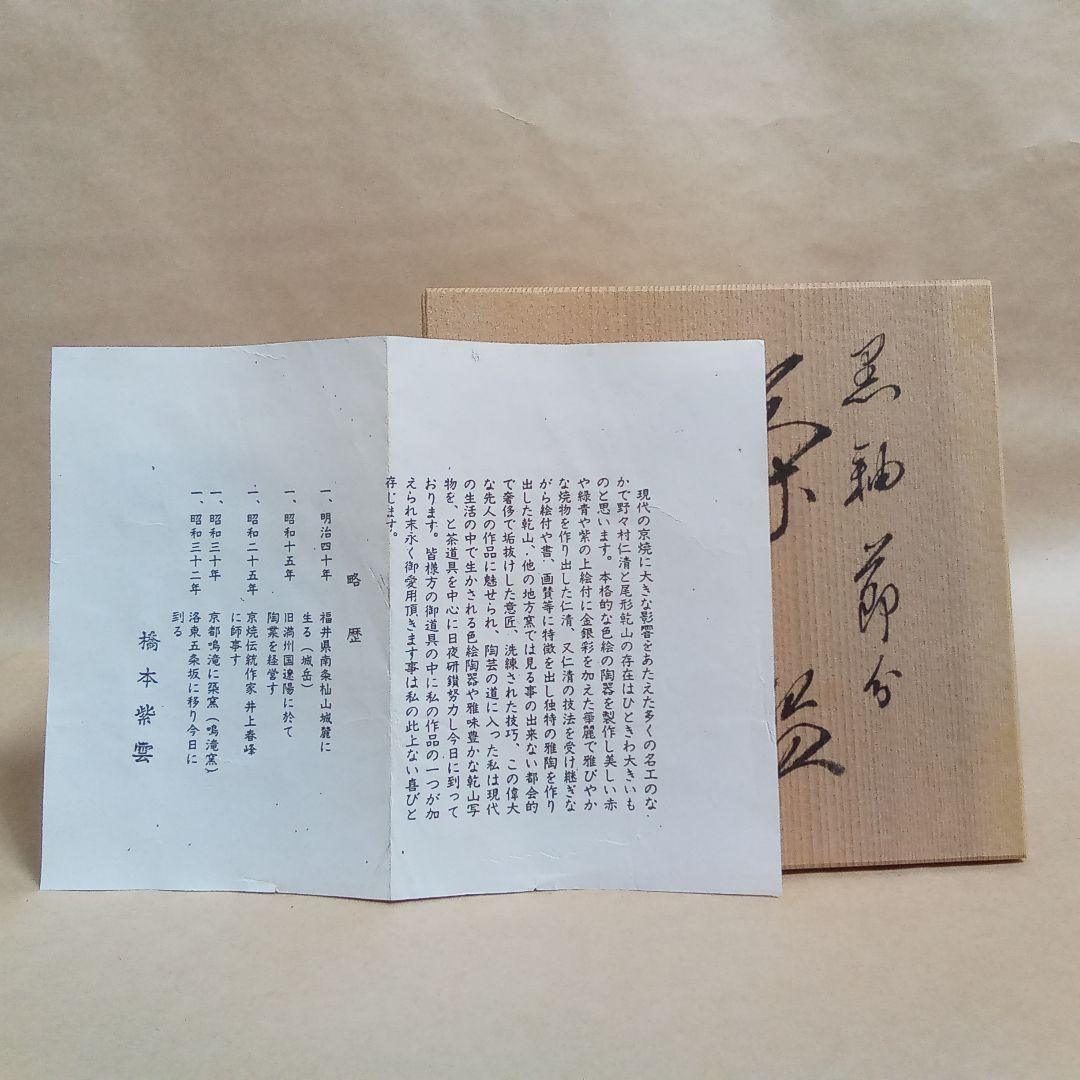 現代の京焼に大きな影響をあたえた多くの名工のな
かで野々村仁清と尾形乾山の存在はひときわ大きいも
のと思います。本格的な色絵の陶器を製作し美しい赤
や緑青や紫の上絵付に金銀彩を加えた華麗で雅びやか
な焼物を作り出した仁清、又仁清の技法を受け継ぎな
がら絵付や書、画賛等に特徴を出し独特の雅陶を作り
出した乾山、他の地方窯では見る事の出来ない都会的
で奢侈で垢抜けした意匠、洗練された技巧、この偉大
な先人の作品に魅せられ、陶芸の道に入った私は現代
の生活の中で生かされる色絵陶器や雅味豊かな乾山写
物を、と茶道具を中心に日夜研鑽努力し今日に到って
おります。皆様方の御道具の中に私の作品の一つが加
えられ末永く御愛用頂きます事は私の此上ない喜びと
存じます。
略歴
一、明治四十年 福井県南条杣山城麓に
生る（城岳）
一、昭和十五年 旧満州国遼陽に於て
陶業を経営す
一、昭和二十五年 京焼伝統作家 井上春峰
に師事す
一、昭和三十年 京都鳴滝に築窯（鳴滝窯）
一、昭和三十二年 洛東五条坂に移り今日に
到る
橋本紫雲
黒釉節分
茶盌